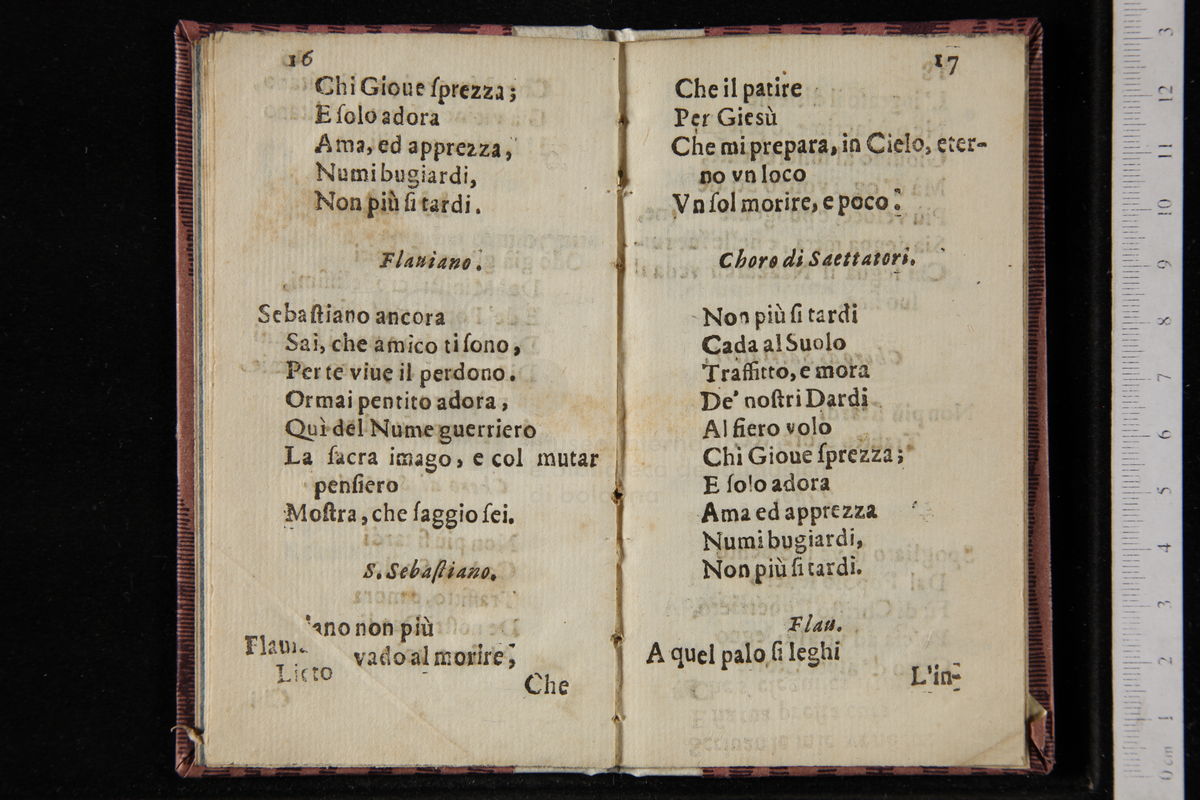 16
Chi Gioue ſprezza;
E ſolo adora
Ama, ed apprezza,
Numi bugiardi,
Non più ſi tardi.
Flauiano.
Sebaſtiano ancora
Sai, che amico ti ſono,
Per te viue il perdono.
Ormai pentito adora,
Quì del Nume guerriero
La ſacra imago, e col mutar
penſiero
Moſtra, che ſaggio ſei.
S. Sebaſtiano.
Flauiano non più
Lieto vado al morire;
Che
17
Che il patire
Per Giesù
Che mi prepara, in Cielo, eter-
no vn loco
Vn ſol morire, e poco:
Choro di Saettatori.
Non più ſi tardi
Cada al Suolo
Traffitto, e mora
De' noſtri Dardi
Al fiero volo
Chi Gioue ſprezza;
E ſolo adora
Ama ed apprezza
Numi bugiardi,
Non più ſi tardi.
Flau.
A quel palo ſi leghi
L'in-
0 cm 1 2 3 4 5 6 7 8 9 10 11 12 13